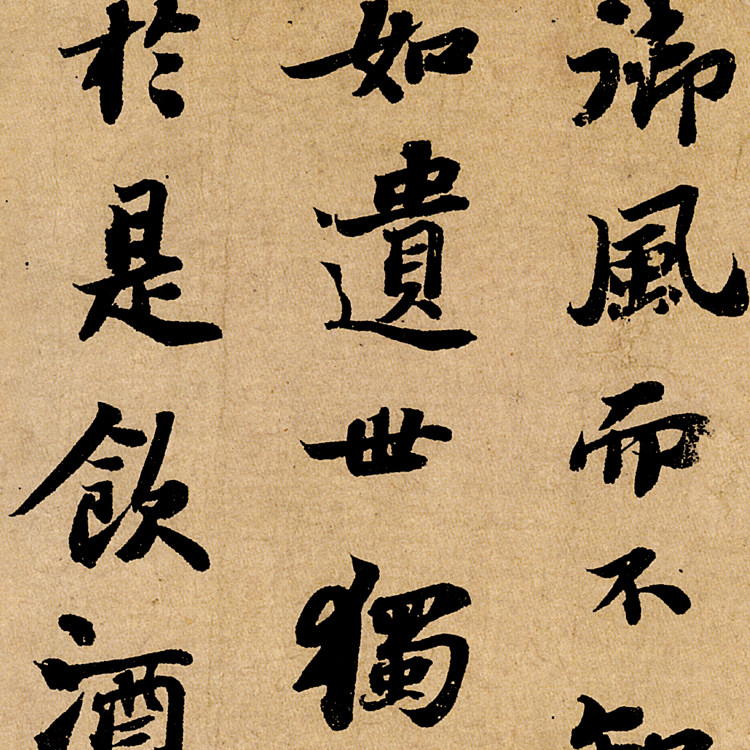 御風而不知
如遺世獨
於是飲酒